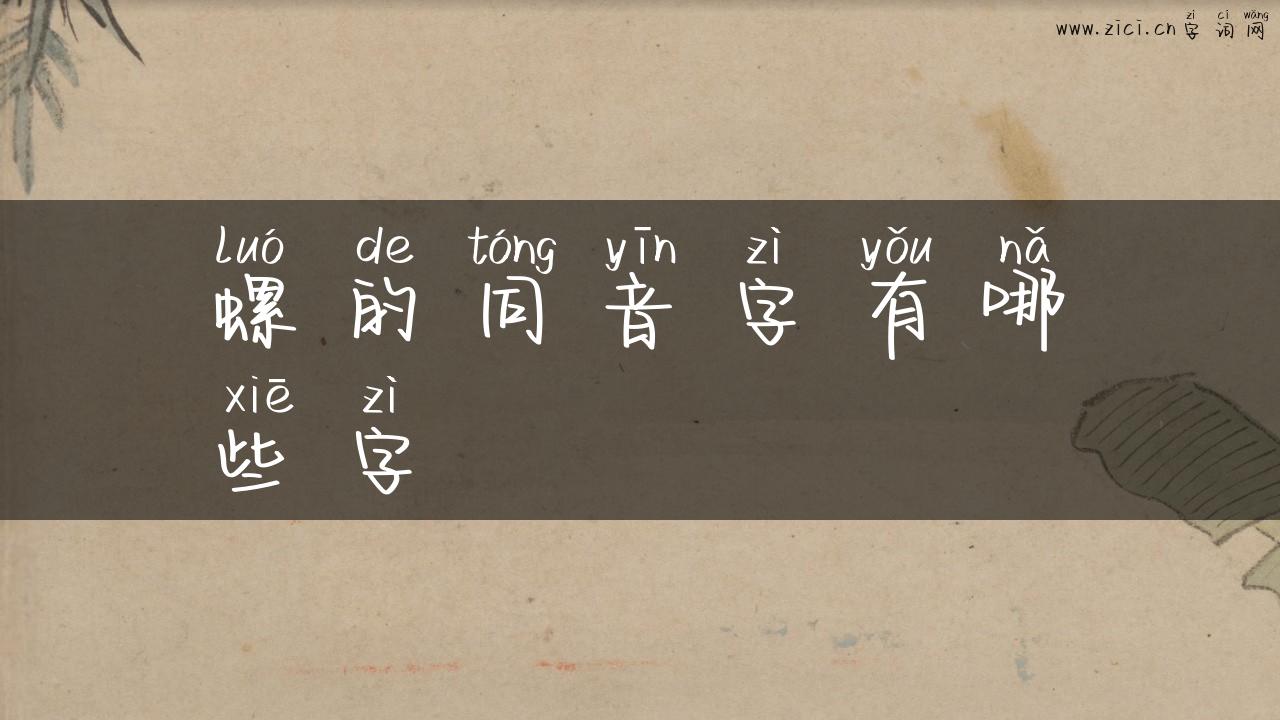 zì cí wǎng
www.zici.cn 字词网
luó de tóng yīn zì yǒu nǎ
螺的同音字有哪
xiē zì
些字